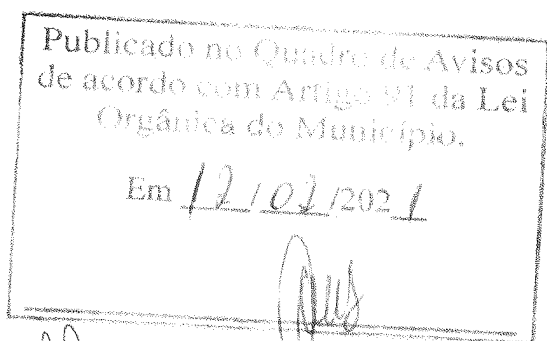 Publicado no Quadro de Avisos
de acordo com Artigo 91 da Lei
Orgânica do Município.
Em 12/02/2021